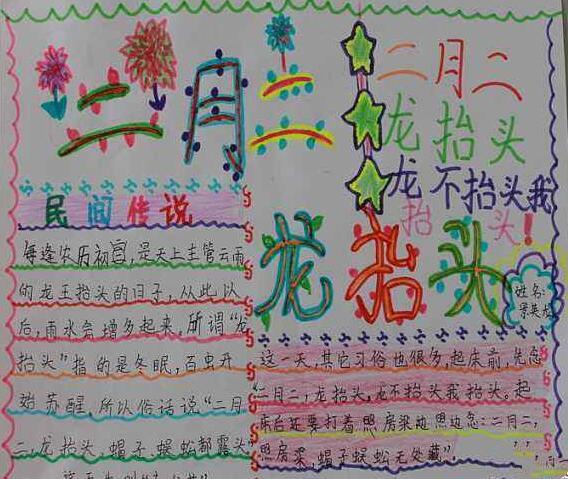 二月二
二月二
龙抬头
龙不抬头我
抬头!
龙抬头
民间传说
每逢农历初,是天上主管云雨
的龙王抬头的日子,从此以
后,雨水会增多起来,所谓“龙
抬头”指的是冬眠,百虫开
始苏醒,所以俗话说“二月
二,龙抬头、蝎子、蜈蚣都露头
姓名:
这一天,其它习俗也很多,起床前,先念
“二月二,龙抬头,龙不抬头我抬头。起
床后还要打着照房梁边照边念:二月二,
照房梁,蝎子蜈蚣无处藏”